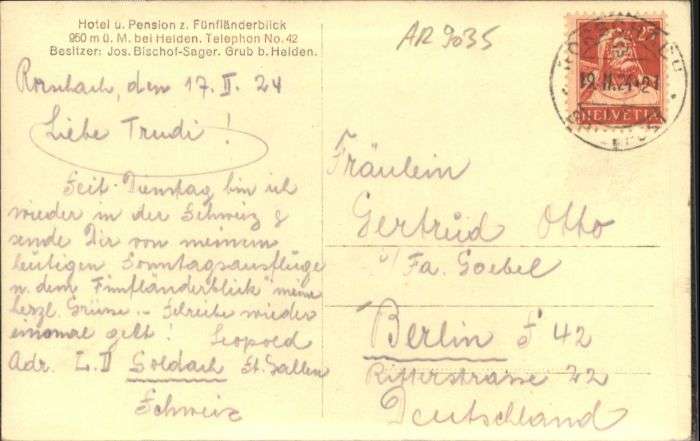 Hotel u. Pension z. Fünfländerblick
950 m ü. M. bei Heiden. Telephon No. 42
Besitzer: Jos. Bischof-Sager. Grub b. Heiden.
Rorschach, den 17. II. 24
Liebe Trudi!
Seit Dienstag bin ich
wieder in der Schweiz &
sende Dir von meinem
heutigen Sonntagsausfluge
n. dem Fünfländerblick meine
herzl. Grüsse.. Schreibe wieder
einmal gelt! Leopold
Adr. L.II Goldach St. Gallen
Schweiz
AR 9035
25
19.II.24
HELVETIA
Fräulein
Gertrud Otto
Fa. Goebel
Berlin S 42
Ritterstrasse 22
Deutschland